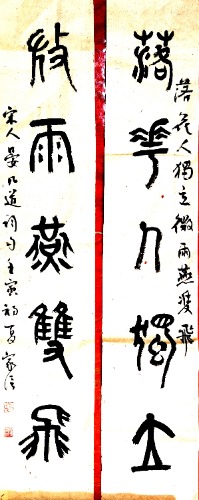 落花人獨立微雨燕雙飛
落花人獨立
微雨燕雙飛
宋人晏几道詞句壬寅初夏家信